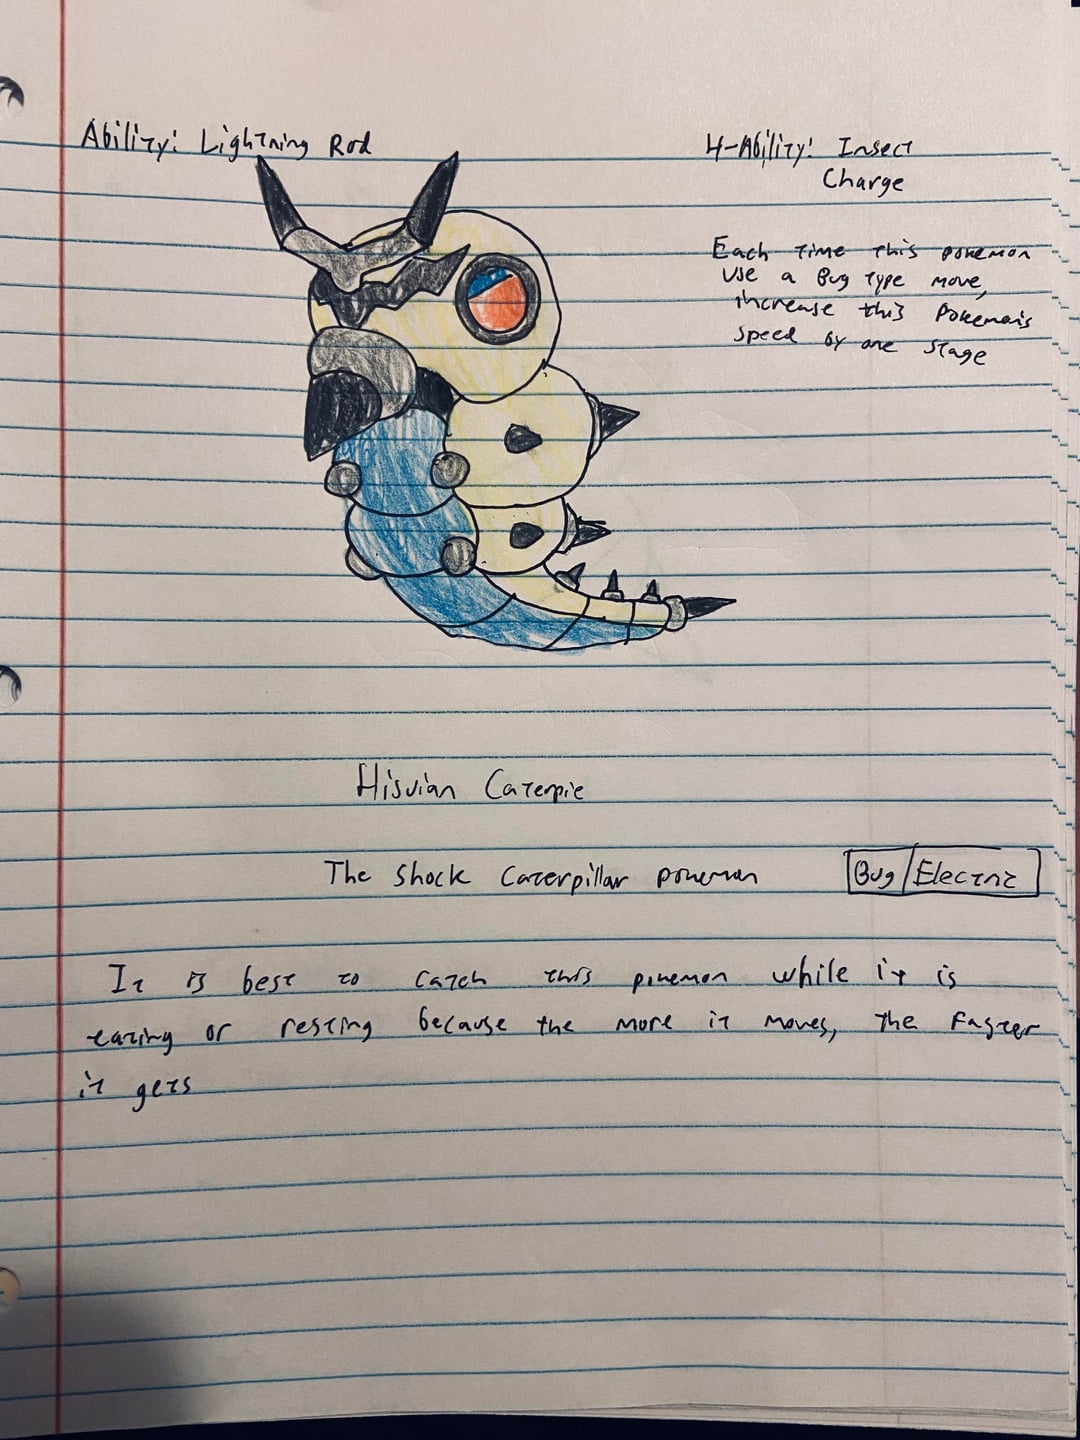 Ability: Lightning Rod
H-Ability: Insect
Charge
Each time this pokemon
use a Bug type move,
increase this Pokemon's
speed by one stage
Hisuian Caterpie
The Shock Caterpillar pokemon
Bug/Electric
It is best to catch this pokemon while it is
eating or resting because the more it moves, the faster
it gets